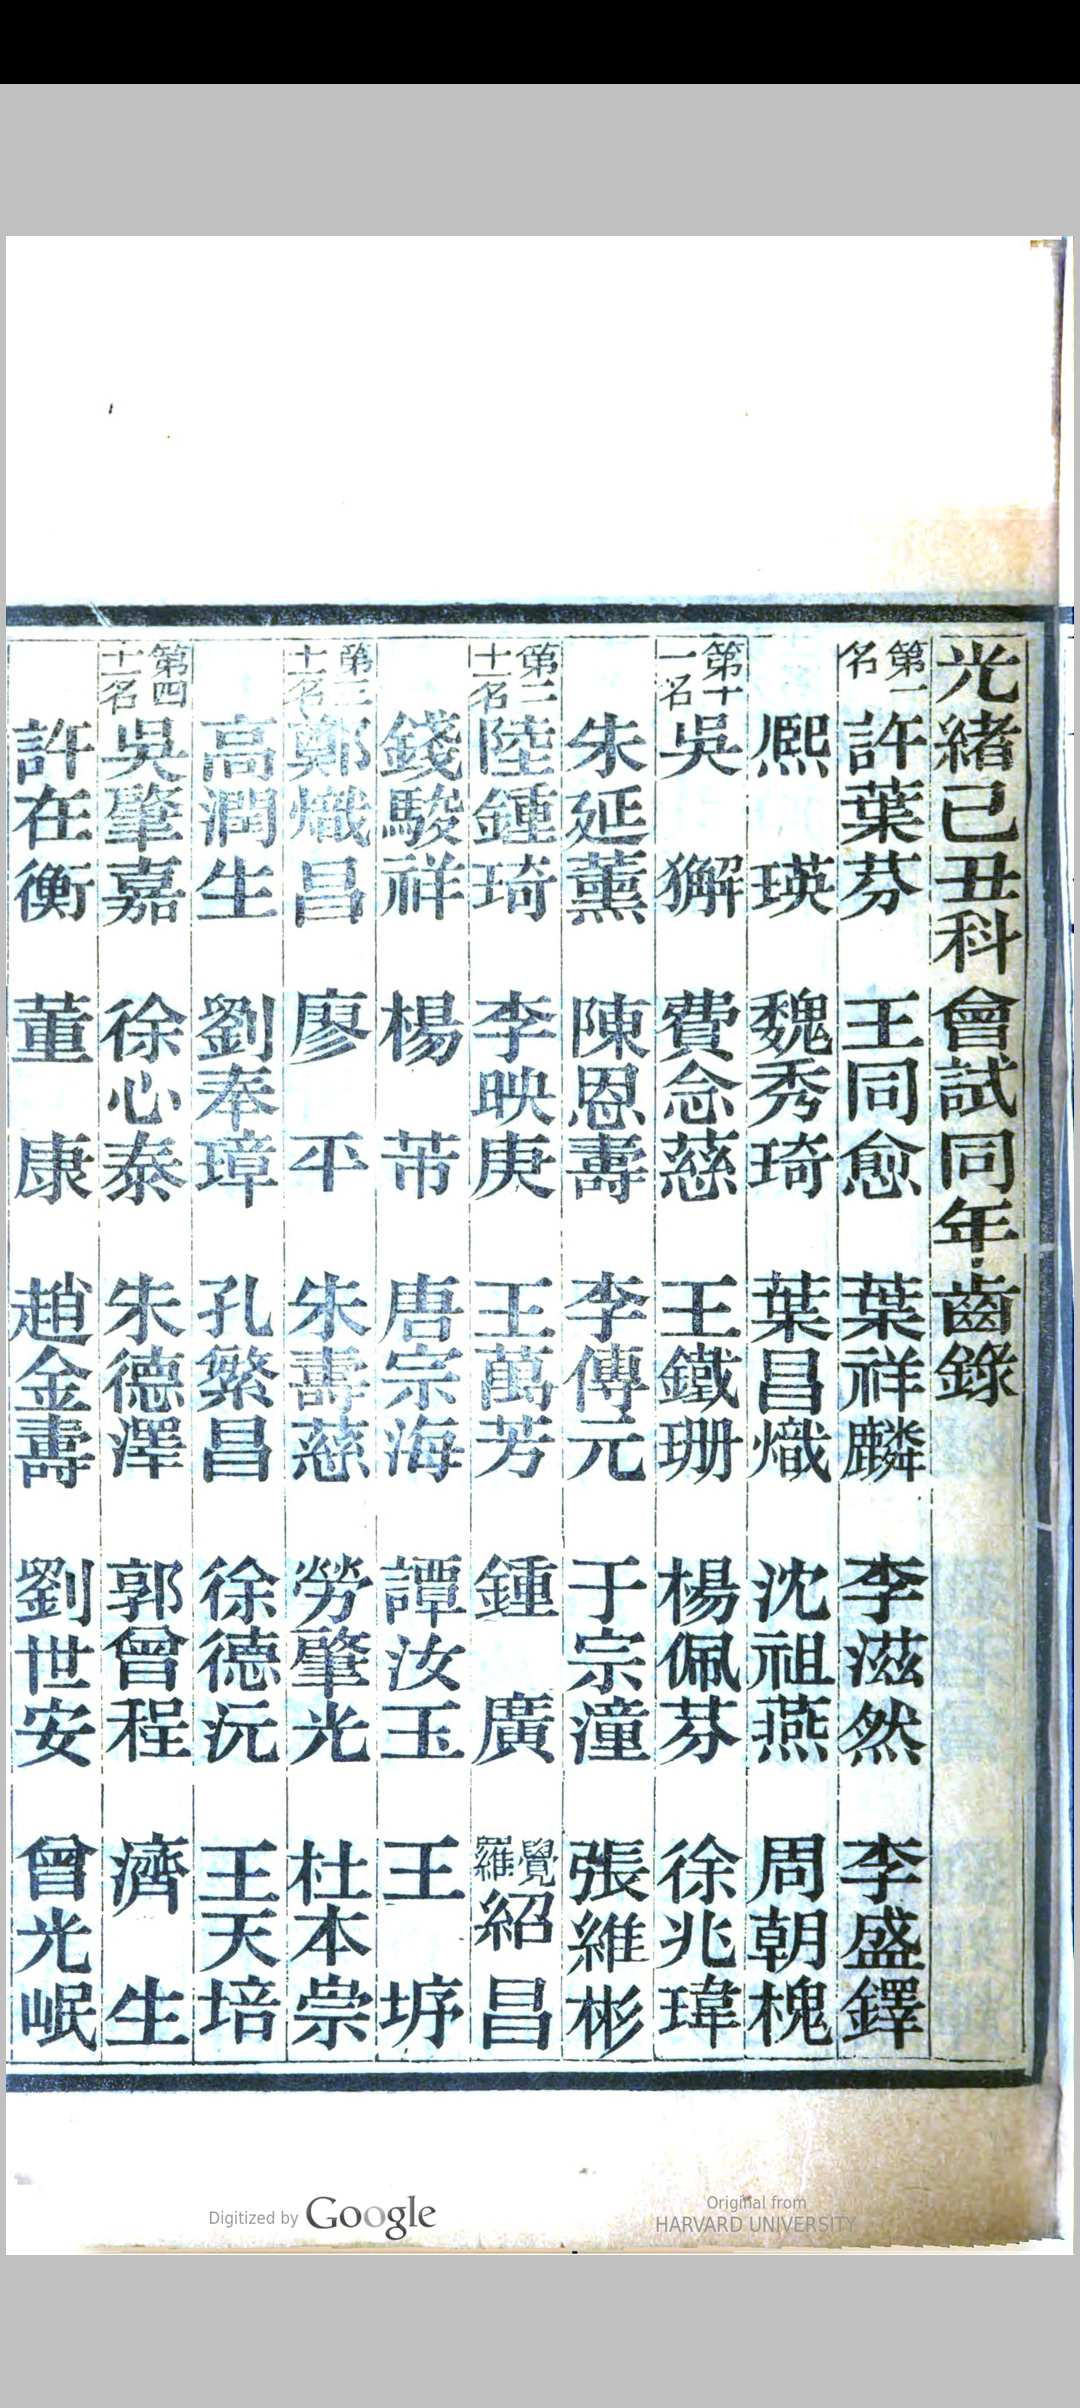 光緒己丑科會試同年齒錄
第一名 許葉芬 王同愈 葉祥麟 李滋然 李盛鐸
熙瑛 魏秀琦 葉昌熾 沈祖燕 周朝槐
第十一名 吳獬 費念慈 王鐵珊 楊佩芬 徐兆瑋
朱延薰 陳恩壽 李傳元 于宗潼 張維彬
第二十一名 陸鍾琦 李映庚 王萬芳 鍾廣 覺羅紹昌
錢駿祥 楊芾 唐宗海 譚汝玉 王垿
第三十一名 鄭熾昌 廖平 朱壽慈 勞肇光 杜本崇
高潤生 劉奉璋 孔繁昌 徐德沅 王天培
第四十一名 吳肇嘉 徐心泰 朱德澤 郭曾程 濟生
許在衡 董康 趙金壽 劉世安 曾光岷
Digitized by Google
Original from
HARVARD UNIVERSITY